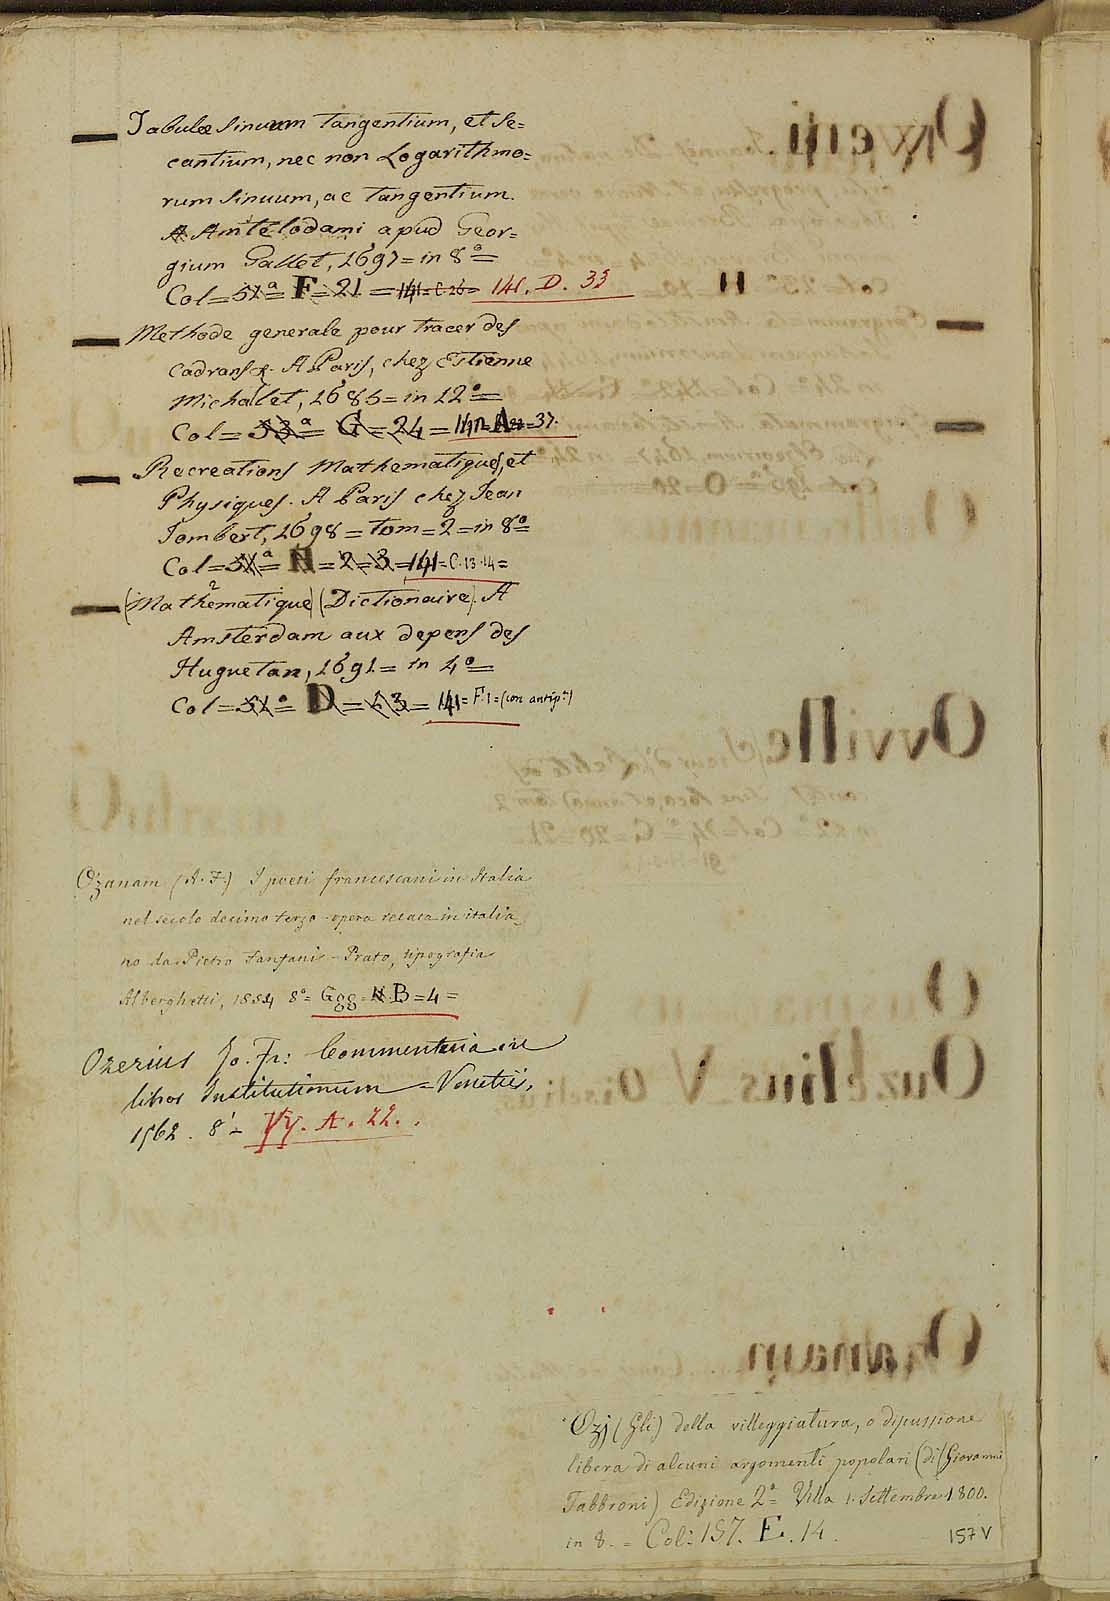 Tabulæ Sinuum Tangentium, et Se=
cantium, nec non Logarithmo=
rum Sinuum, ac Tangentium.
Amstelodami apud Geor=
gium Gallet, 1697 = in 8°=
Col = 51ª = F = 21 = 141 = C 26 = 141. D. 33
Methode generale pour tracer des
Cadrans &. A Paris, chez Estienne
Michallet, 1685 = in 12° =
Col = 53ª = G = 24 = 141 = A = 37.
Recreations Mathematiques, et
Physiques. A Paris chez Jean
Jombert, 1698 = tom = 2 = in 8°=
Col = 51ª = H = 2 = 3 = 141 = C. 13. 14 =
(Mathematique) (Dictionaire). A
Amsterdam aux depens des
Huguetan, 1691 = in 4° =
Col = 51ª = D = 13 = 141 = F. 1 = (con antip.)
Ozanam (A. F.) I poeti francescani in Italia
nel secolo decimo terzo - opera recata in italia_
no da Pietro Fanfani - Prato, tipografia
Alberghetti, 1854 8° = Ggg = B = 4 =
Ozerius Jo. Fr: Commentaria in
libros Institutionum = Venetiis,
1562. 8° - Yy. A. 22.
Ozj (Gli) della villeggiatura, o discussione
libera di alcuni argomenti popolari (di (Giovanni
Fabbroni) Edizione 2ª = Villa 1. Settembre 1800.
in 8. = Col: 157. E. 14.
157 V